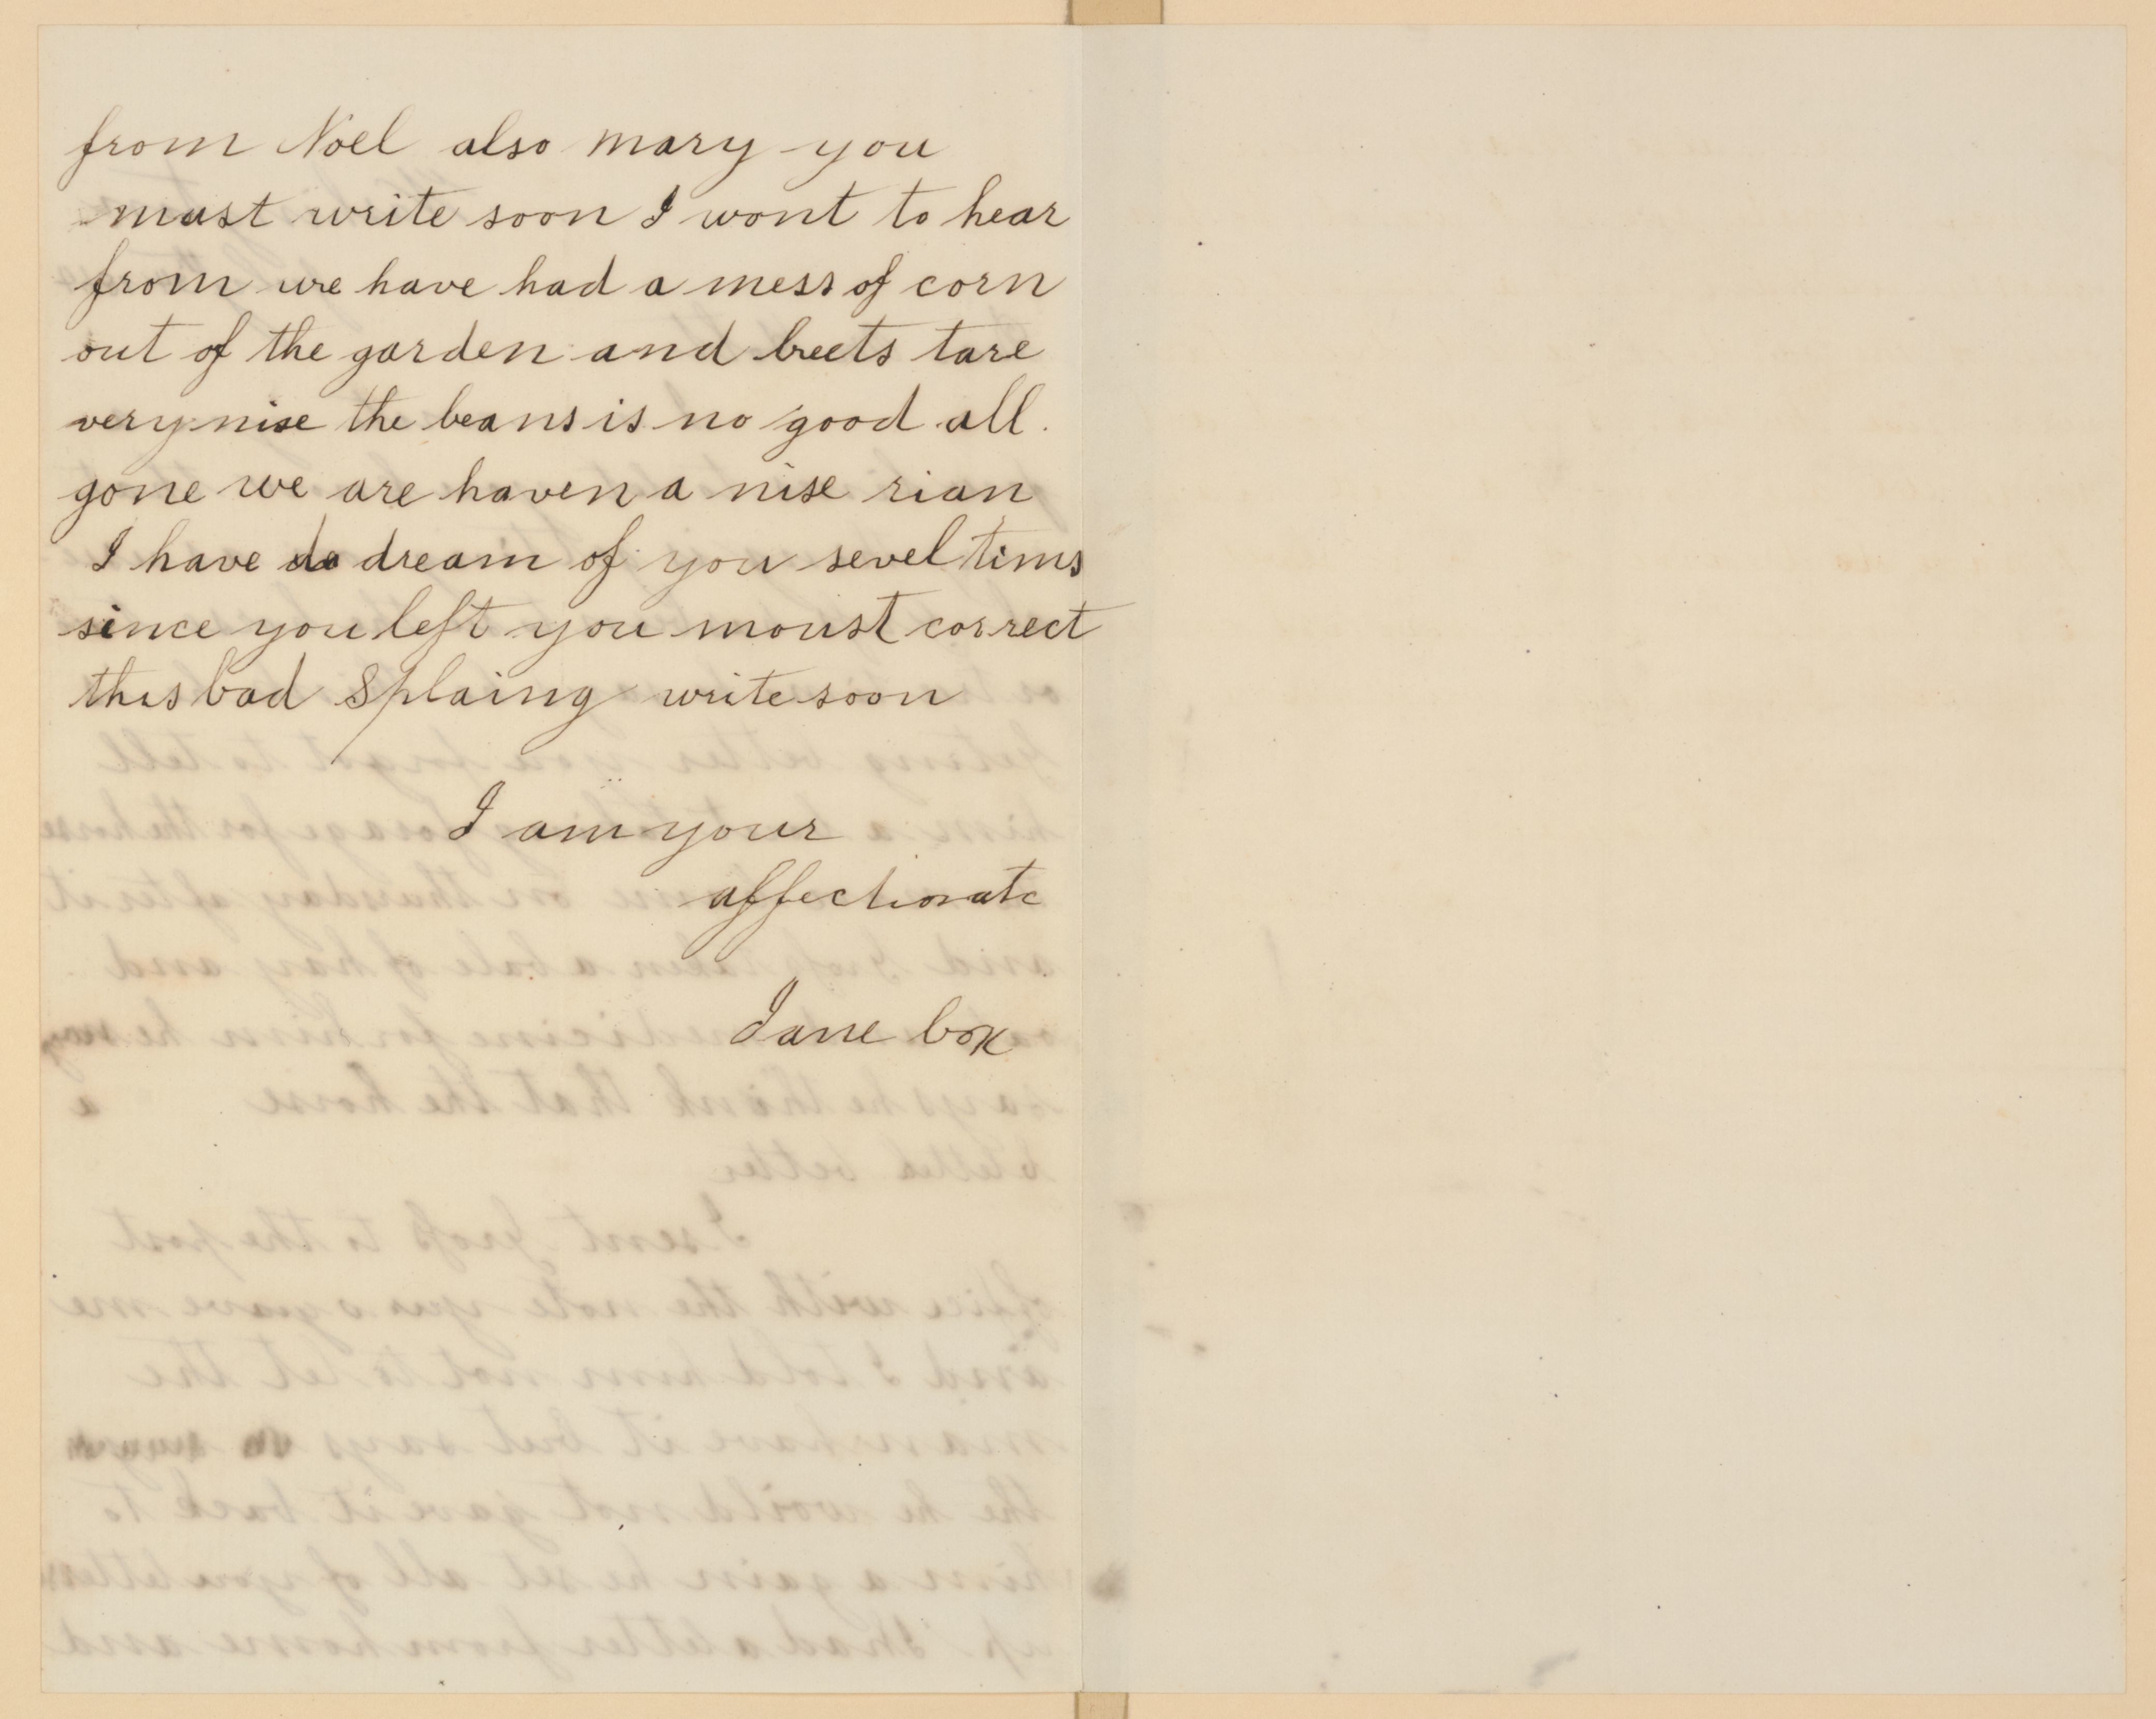 from Noel also mary you
must write soon I wont to hear
from we have had a mess of corn
out of the garden and beets tare
very nise the beans is no good all
gone we are haven a nise rian
I have do dream of you sevel tims
since you left you moust correct
this bad Splaing write soon
I am your
affectionate
Jane box